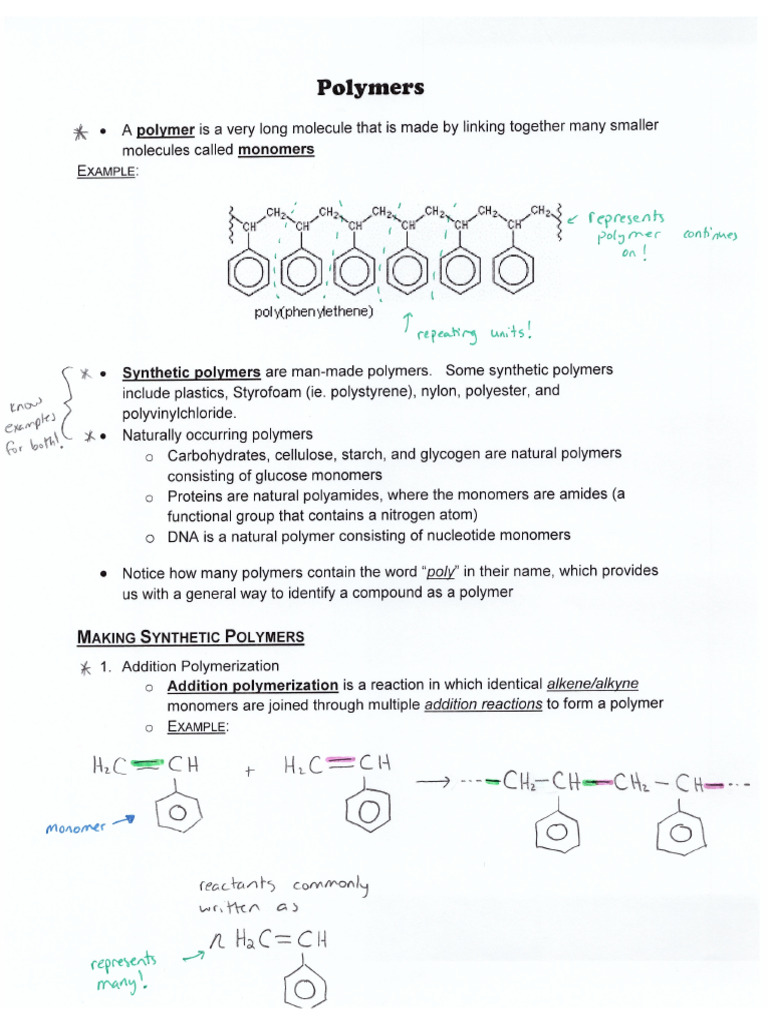 Polymers
* • A polymer is a very long molecule that is made by linking together many smaller
molecules called monomers
EXAMPLE:
CH₂ CH₂ CH₂ CH₂ CH₂ CH₂
CH CH CH CH CH CH
← represents
polymer continues
on!
poly(phenylethene)
↑ repeating units!
* • Synthetic polymers are man-made polymers. Some synthetic polymers
include plastics, Styrofoam (ie. polystyrene), nylon, polyester, and
polyvinylchloride.
know
examples
for both!
* • Naturally occurring polymers
o Carbohydrates, cellulose, starch, and glycogen are natural polymers
consisting of glucose monomers
o Proteins are natural polyamides, where the monomers are amides (a
functional group that contains a nitrogen atom)
o DNA is a natural polymer consisting of nucleotide monomers
• Notice how many polymers contain the word “poly” in their name, which provides
us with a general way to identify a compound as a polymer
MAKING SYNTHETIC POLYMERS
* 1. Addition Polymerization
o Addition polymerization is a reaction in which identical alkene/alkyne
monomers are joined through multiple addition reactions to form a polymer
o EXAMPLE:
H₂C=CH + H₂C=CH → ---CH₂-CH-CH₂-CH---
monomer →
reactants commonly
written as
n H₂C=CH
represents →
many!